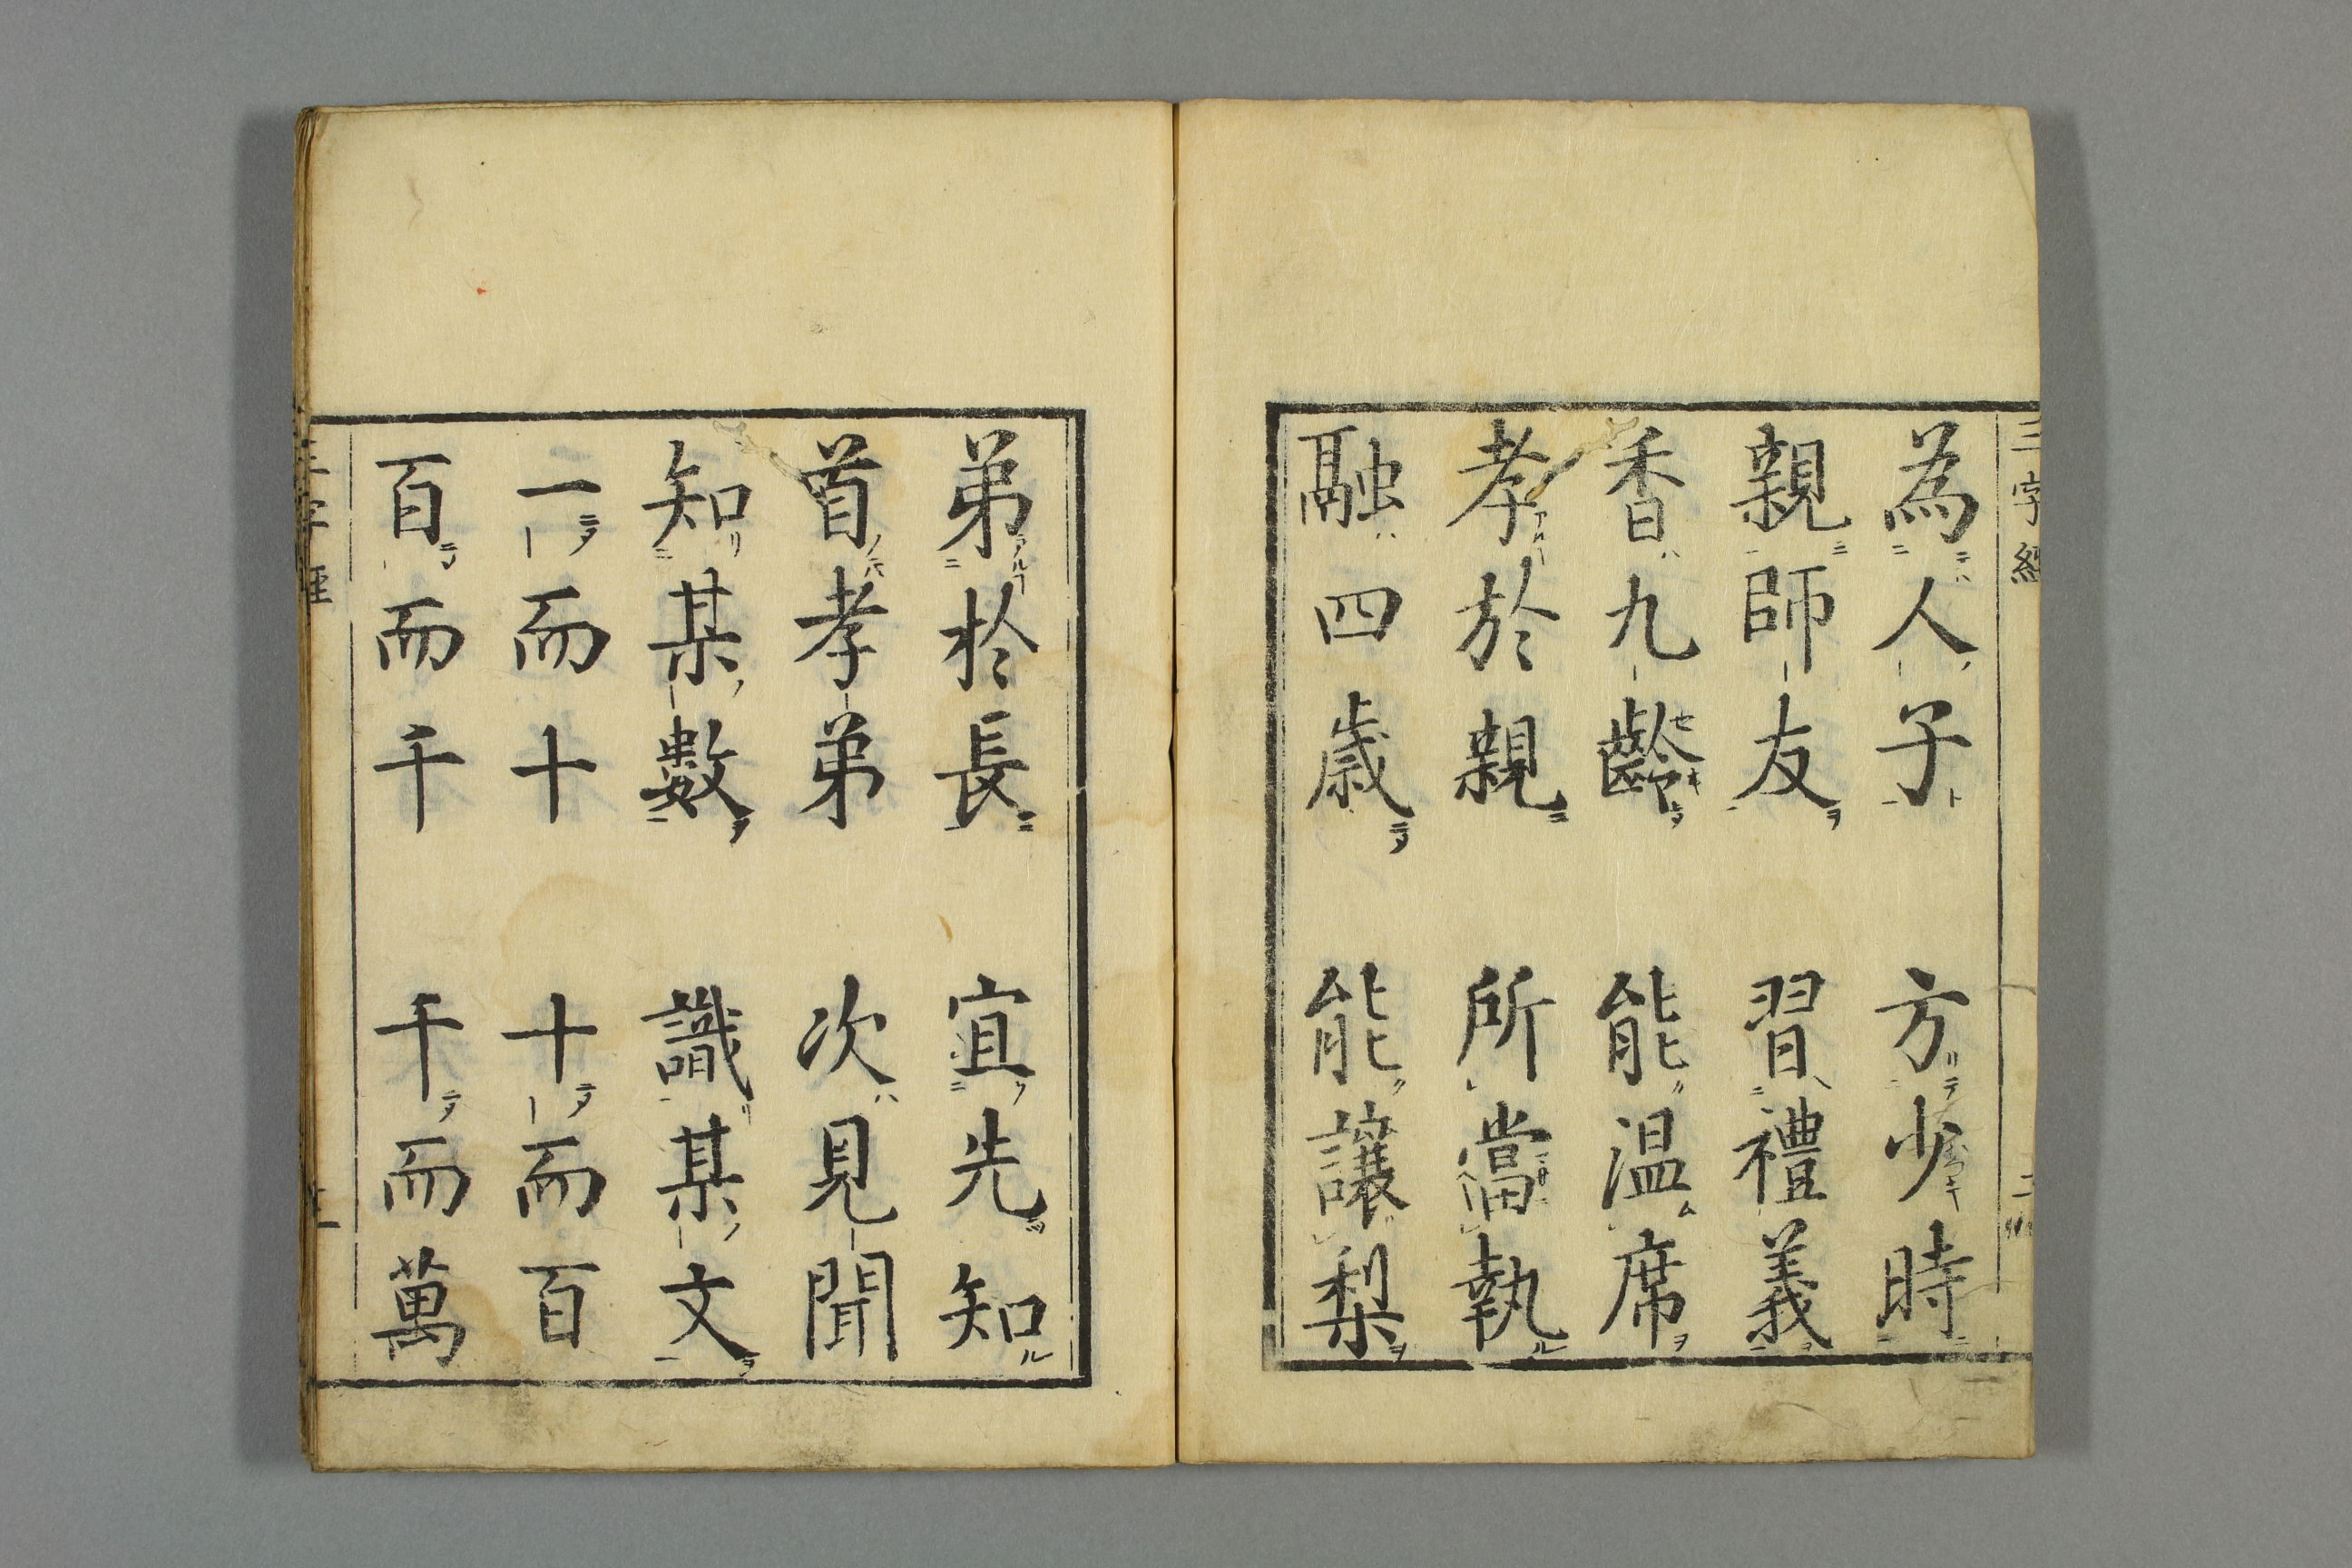 三字經
為人子 方少時
親師友 習禮義
香九齡 能温席
孝於親 所當執
融四歳 能讓梨
弟於長 宜先知
首孝弟 次見聞
知某數 識某文
一而十 十而百
百而千 千而萬
三字經